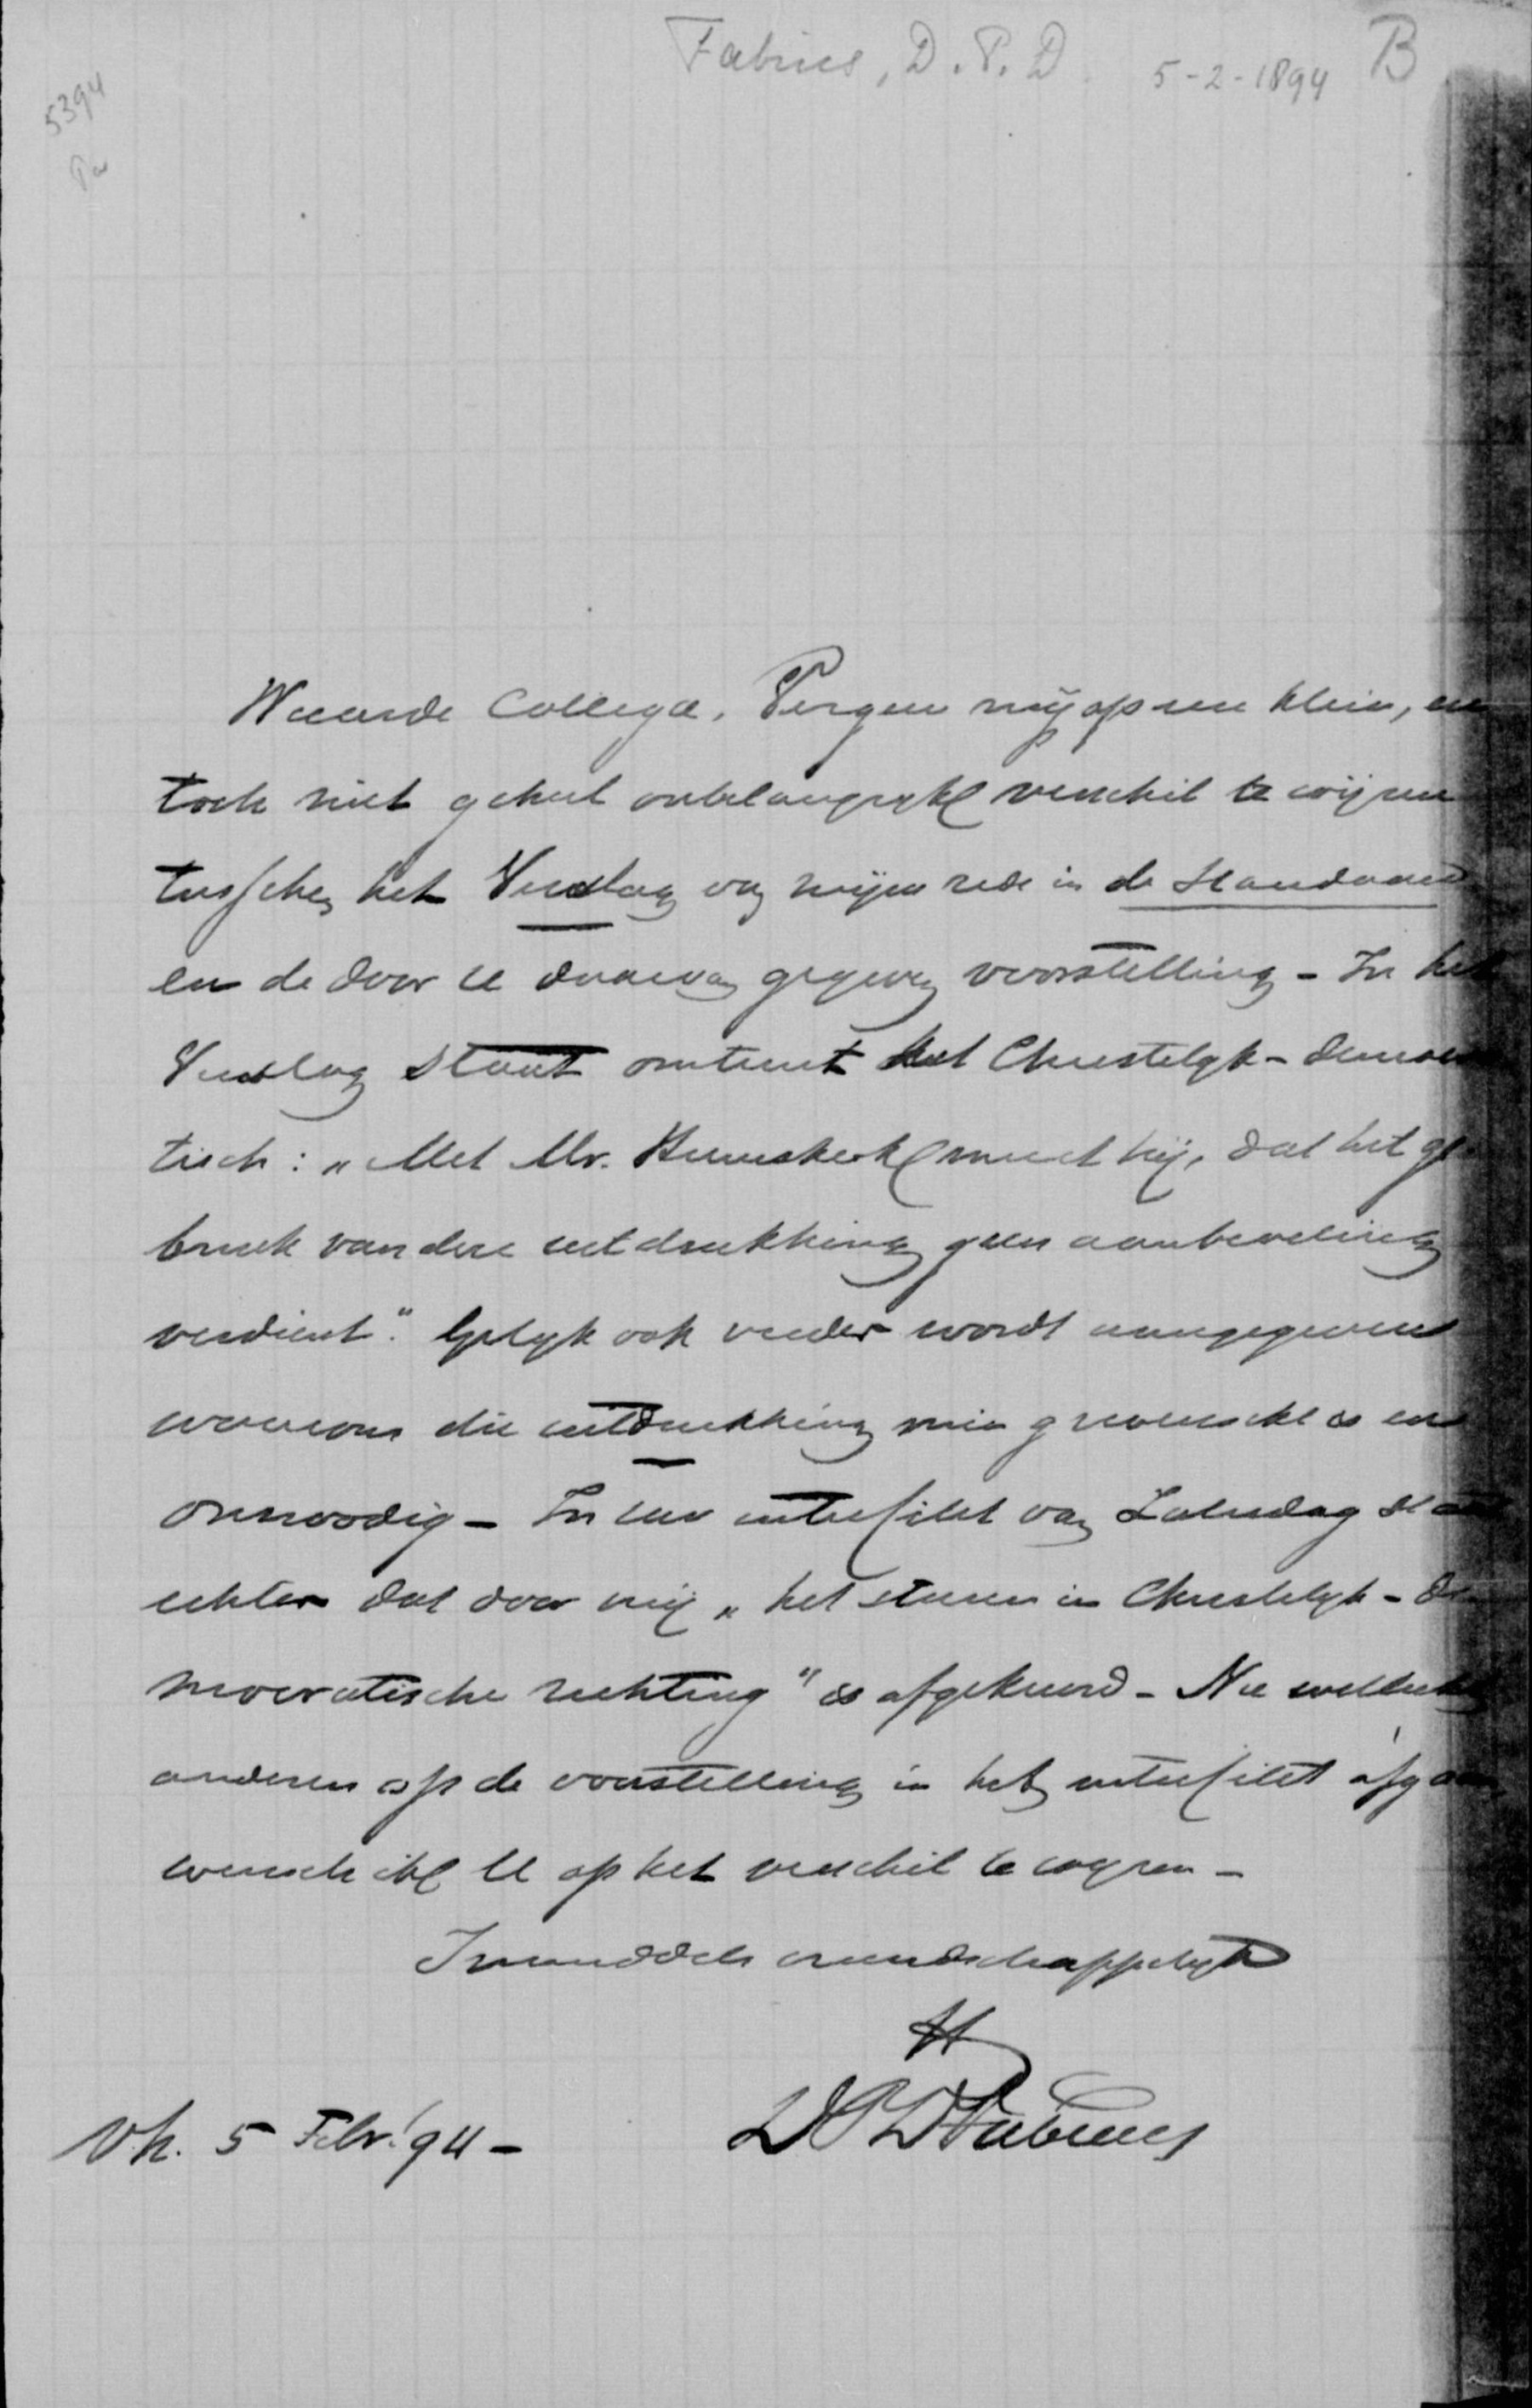 Fabius, D. P. D. 5-2-1894 B
5394
Waarde Collega, Vergun mij op een klein, en
toch niet geheel onbelangrijk verschil te wijzen
tusschen het Verslag van mijn rede in de Standaard
en de door U daarvan gegeven voorstelling - In het
Verslag staat omtrent het Christelijk-democra
tisch: "Met Mr. Heemskerk meent hij, dat het ge
bruik van deze uitdrukking geen aanbeveling
verdient". Gelijk ook verder wordt aangegeven
waarom die uitdrukking min gewenscht is en
onnoodig - In uw entrefilet van Zaterdag staat
echter dat door mij "het sturen in Christelijk-de
mocratische richting" is afgekeurd - Nu wellicht
anderen op de voorstelling in het entrefilet afgaan
wensch ik U op het verschil te wijzen -
Inmiddels vriendschappelijk
DPDFabius
Vh. 5 Febr. '94 -